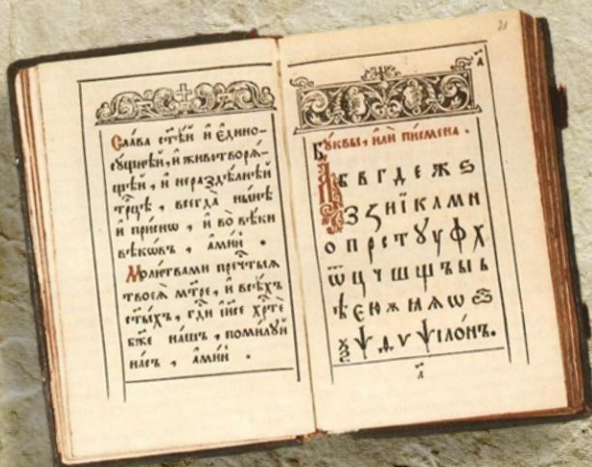 Сла́ва ст҃ѣ́й и҆ є҆дино-
су́щнѣй, и҆ животворѧ́-
щей, и҆ нераздѣ́лнѣй
трⷪ҇цѣ, всегда̀ ны́нѣ
и҆ при́снѡ, и҆ во вѣ́ки
вѣкѡ́въ, а҆ми́нь .
Моли́твами пречⷭ҇тыѧ
твоеѧ̀ мт҃ре, и҆ всѣ́хъ
ст҃ы́хъ, гдⷭ҇и і҆и҃се хрⷭ҇те
бж҃е на́шъ, поми́лꙋй
на́съ, а҆ми́нь .
21
а҃
Бꙋ́квы, и҆лѝ писмена̀ .
А б в г д е ж ѕ
з ꙁ и ї к л м н
о п р с т ꙋ у ф х
ѿ ц ч ш щ ъ ы ь
ѣ є ю ѫ ꙗ ѧ ѡ
ѯ ѱ ѳ ѵ ѱїло́нъ.
а҃